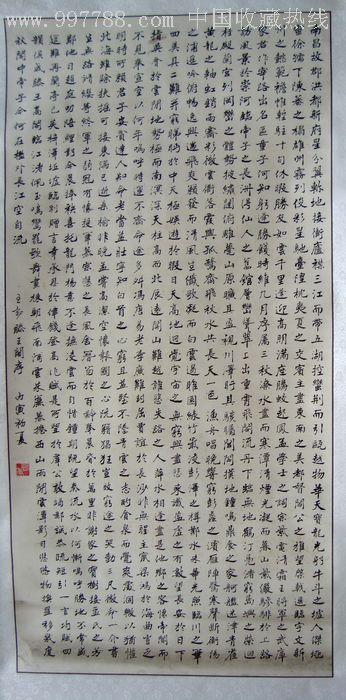 www.997788.com 中国收藏热线
南昌故郡洪都新府星分翼軫地接衡廬襟三江而帶五湖控蠻荊而引甌越物華天寶龍光射牛斗之墟人傑地
靈徐孺下陳蕃之榻雄州霧列俊彩星馳臺隍枕夷夏之交賓主盡東南之美都督閻公之雅望棨戟遙臨宇文新
州之懿範襜帷暫駐十旬休暇勝友如雲千里逢迎高朋滿座騰蛟起鳳孟學士之詞宗紫電清霜王將軍之武庫
家君作宰路出名區童子何知躬逢勝餞時維九月序屬三秋潦水盡而寒潭清煙光凝而暮山紫儼驂騑於上路
訪風景於崇阿臨帝子之長洲得仙人之舊館層巒聳翠上出重霄飛閣流丹下臨無地鶴汀鳧渚窮島嶼之縈迴
桂殿蘭宮列岡巒之體勢披繡闥俯雕甍山原曠其盈視川澤盱其駭矚閭閻撲地鐘鳴鼎食之家舸艦迷津青雀
黃龍之軸虹銷雨霽彩徹雲衢落霞與孤鶩齊飛秋水共長天一色漁舟唱晚響窮彭蠡之濱雁陣驚寒聲斷衡陽
之浦遙吟俯暢逸興遄飛爽籟發而清風生纖歌凝而白雲遏睢園綠竹氣凌彭澤之樽鄴水朱華光照臨川之筆
四美具二難并窮睇眄於中天極娛遊於暇日天高地迥覺宇宙之無窮興盡悲來識盈虛之有數望長安於日下
指吳會於雲間地勢極而南溟深天柱高而北辰遠關山難越誰悲失路之人萍水相逢盡是他鄉之客懷帝閽而
不見奉宣室以何年嗚呼時運不齊命途多舛馮唐易老李廣難封屈賈誼於長沙非無聖主竄梁鴻於海曲豈乏
明時所賴君子安貧達人知命老當益壯寧知白首之心窮且益堅不墜青雲之志酌貪泉而覺爽處涸轍以猶懽
北海雖賒扶搖可接東隅已逝桑榆非晚孟嘗高潔空懷報國之心阮籍猖狂豈效窮途之哭勃三尺微命一介書
生無路請纓等終軍之弱冠有懷投筆慕宗愨之長風舍簪笏於百齡奉晨昏於萬里非謝家之寶樹接孟氏之芳
鄰他日趨庭叨陪鯉對今晨捧袂喜托龍門楊意不逢撫凌雲而自惜鍾期既遇奏流水以何慚嗚呼勝地不常盛
筵難再蘭亭已矣梓澤丘墟臨別贈言幸承恩於偉餞登高作賦是所望於群公敢竭鄙誠恭疏短引一言均賦四
韻俱成滕王高閣臨江渚佩玉鳴鸞罷歌舞畫棟朝飛南浦雲朱簾暮捲西山雨閒雲潭影日悠悠物換星移幾度
秋閣中帝子今何在檻外長江空自流
王勃滕王閣序 丙寅初夏